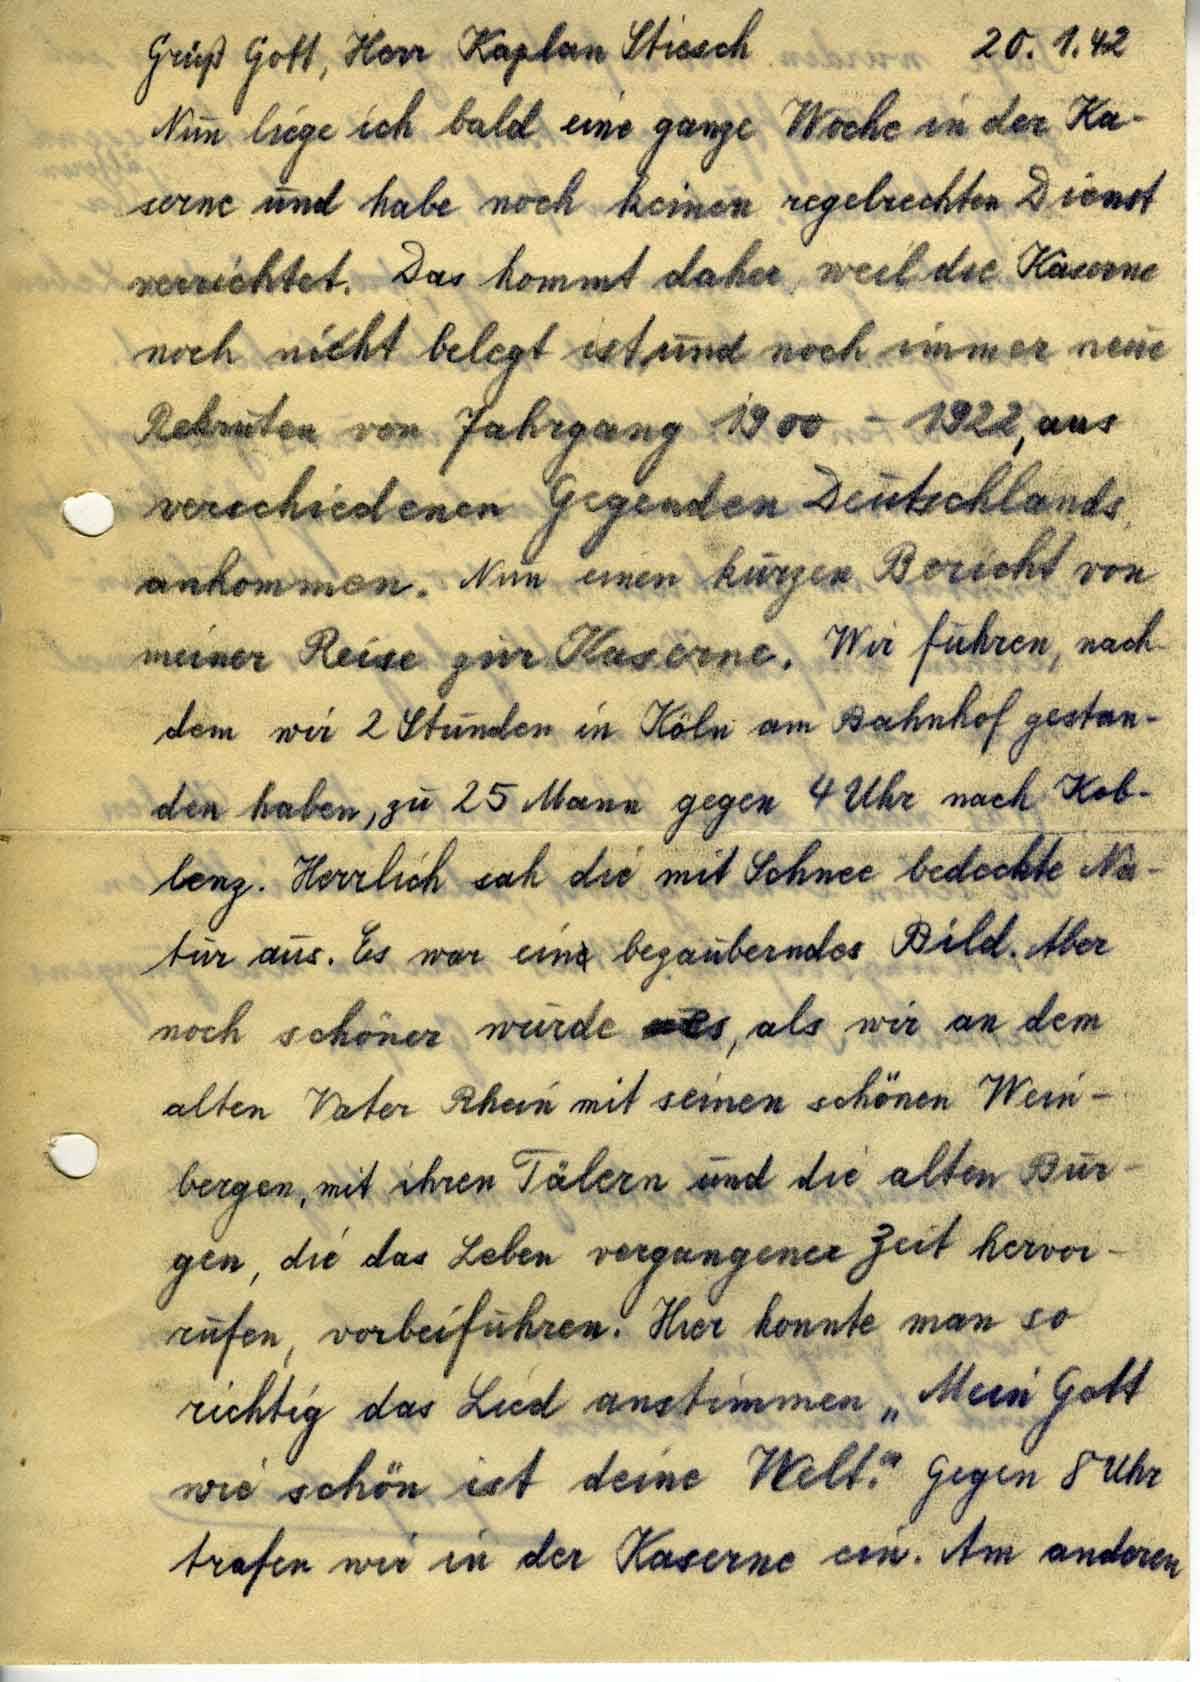 Grüß Gott, Herr Kaplan Stiesch 20. 1. 42
Nun liege ich bald eine ganze Woche in der Ka-
serne und habe noch keinen regelrechten Dienst
verrichtet. Das kommt daher, weil die Kaserne
noch nicht belegt ist, und noch immer neue
Rekruten von Jahrgang 1900 – 1922, aus
verschiedenen Gegenden Deutschlands,
ankommen. Nun einen kurzen Bericht von
meiner Reise zur Kaserne. Wir fuhren, nach-
dem wir 2 Stunden in Köln am Bahnhof gestan-
den haben, zu 25 Mann gegen 4 Uhr nach Kob-
lenz. Herrlich sah die mit Schnee bedeckte Na-
tur aus. Es war ein bezauberndes Bild. Aber
noch schöner wurde es, als wir an dem
alten Vater Rhein mit seinen schönen Wein-
bergen, mit ihren Tälern und die alten Bur-
gen, die das Leben vergangener Zeit hervor-
rufen, vorbeifuhren. Hier konnte man so
richtig das Lied anstimmen „Mein Gott
wie schön ist deine Welt." Gegen 8 Uhr
trafen wir in der Kaserne ein. Am anderen